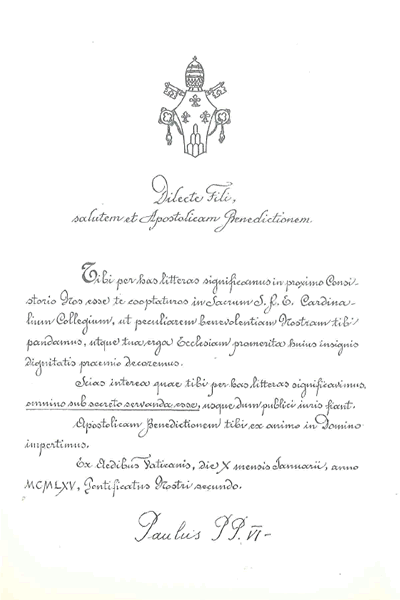 Dilecte Fili,
salutem et Apostolicam Benedictionem
Tibi per has litteras significamus in proximo Consi-
storio Nos esse te cooptaturos in Sacrum S. R. E. Cardina-
lium Collegium, ut peculiarem benevolentiam Nostram tibi
pandamus, utque tua erga Ecclesiam promerita huius insignis
dignitatis praemio decoremus.
Scias interea quae tibi per has litteras significavimus,
omnino sub secreto servanda esse, usque dum publici iuris fiant.
Apostolicam Benedictionem tibi ex animo in Domino
impertimus.
Ex Aedibus Vaticanis, die X mensis Ianuarii, anno
MCMLXV, Pontificatus Nostri secundo.
Paulus PP. VI-